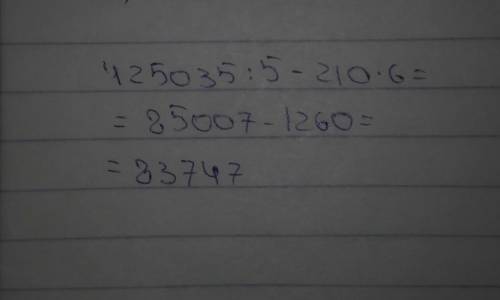 425035:5-210·6=
= 85007-1260=
= 83747